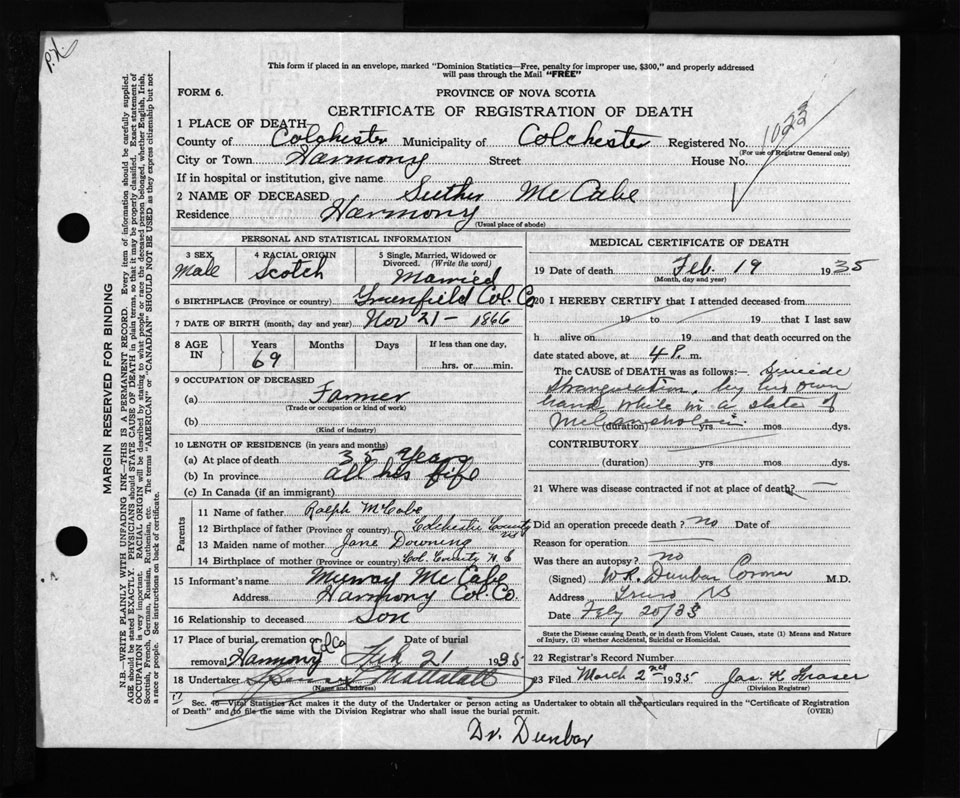 P.X.
This form if placed in an envelope, marked "Dominion Statistics—Free, penalty for improper use, $300," and properly addressed
will pass through the Mail "FREE"
FORM 6.
PROVINCE OF NOVA SCOTIA
CERTIFICATE OF REGISTRATION OF DEATH
1023
1 PLACE OF DEATH
County of Colchester Municipality of Colchester Registered No.
(For use of Registrar General only)
City or Town Harmony Street House No.
If in hospital or institution, give name
2 NAME OF DECEASED McCabe
Residence Harmony
(Usual place of abode)
PERSONAL AND STATISTICAL INFORMATION
3 SEX 4 RACIAL ORIGIN 5 Single, Married, Widowed or
Divorced (Write the word)
Male Scotch Married
6 BIRTHPLACE (Province or country) Greenfield Col. Co
7 DATE OF BIRTH (month, day and year) Nov 21— 1866
8 AGE IN Years Months Days If less than one day,
69 hrs. or min.
9 OCCUPATION OF DECEASED
(a) Farmer
(Trade or occupation or kind of work)
(b)
(Kind of industry)
10 LENGTH OF RESIDENCE (in years and months)
(a) At place of death 35 Years
(b) In province all his life
(c) In Canada (if an immigrant)
Parents
11 Name of father Ralph McCabe
12 Birthplace of father (Province or country) Colchester County NS
13 Maiden name of mother Jane Downing
14 Birthplace of mother (Province or country) Col. County N. S
15 Informant's name Murray McCabe
Address Harmony Col. Co.
16 Relationship to deceased Son
17 Place of burial, cremation or Date of burial
Col Co
removal Harmony Feb 21 1935
18 Undertaker Mattatall
(Name and address)
MEDICAL CERTIFICATE OF DEATH
19 Date of death Feb. 19 1935
(Month, day and year)
20 I HEREBY CERTIFY that I attended deceased from
19 to 19 that I last saw
h alive on 19 and that death occurred on the
date stated above, at 4 P. m.
The CAUSE OF DEATH was as follows:— Suicide
Strangulation, by his own
hand while in a state of
Melancholia
(duration) yrs mos. dys.
CONTRIBUTORY
(duration) yrs. mos. dys.
21 Where was disease contracted if not at place of death? —
Did an operation precede death? no Date of
Reason for operation
Was there an autopsy? no
(Signed) W.R. Dunbar Coroner M.D.
Address Truro NS
Date 20/35
State the Disease causing Death, or in death from Violent Causes, state (1) Means and Nature
of Injury, (2) whether Accidental, Suicidal or Homicidal.
22 Registrar's Record Number
23 Filed March 2nd 1935 Jas. K. Fraser
(Division Registrar)
17
Sec. 46—Vital Statistics Act makes it the duty of the Undertaker or person acting as Undertaker to obtain all the particulars required in the "Certificate of Registration
of Death" and to file the same with the Division Registrar who shall issue the burial permit. (OVER)
Dr. Dunbar
MARGIN RESERVED FOR BINDING
N.B.—WRITE PLAINLY WITH UNFADING INK—THIS IS A PERMANENT RECORD. Every item of information should be carefully supplied.
AGE should be stated EXACTLY. PHYSICIANS should STATE CAUSE OF DEATH in plain terms, so that it may be properly classified. Exact statement of
OCCUPATION is very important. RACIAL ORIGIN will be described by stating to what people or race the deceased person belonged, whether English, Irish,
Scottish, French, German, Russian, Ruthenian, etc. The terms "AMERICAN" or "CANADIAN" SHOULD NOT BE USED as they express citizenship but not
a race or people. See instructions on back of certificate.